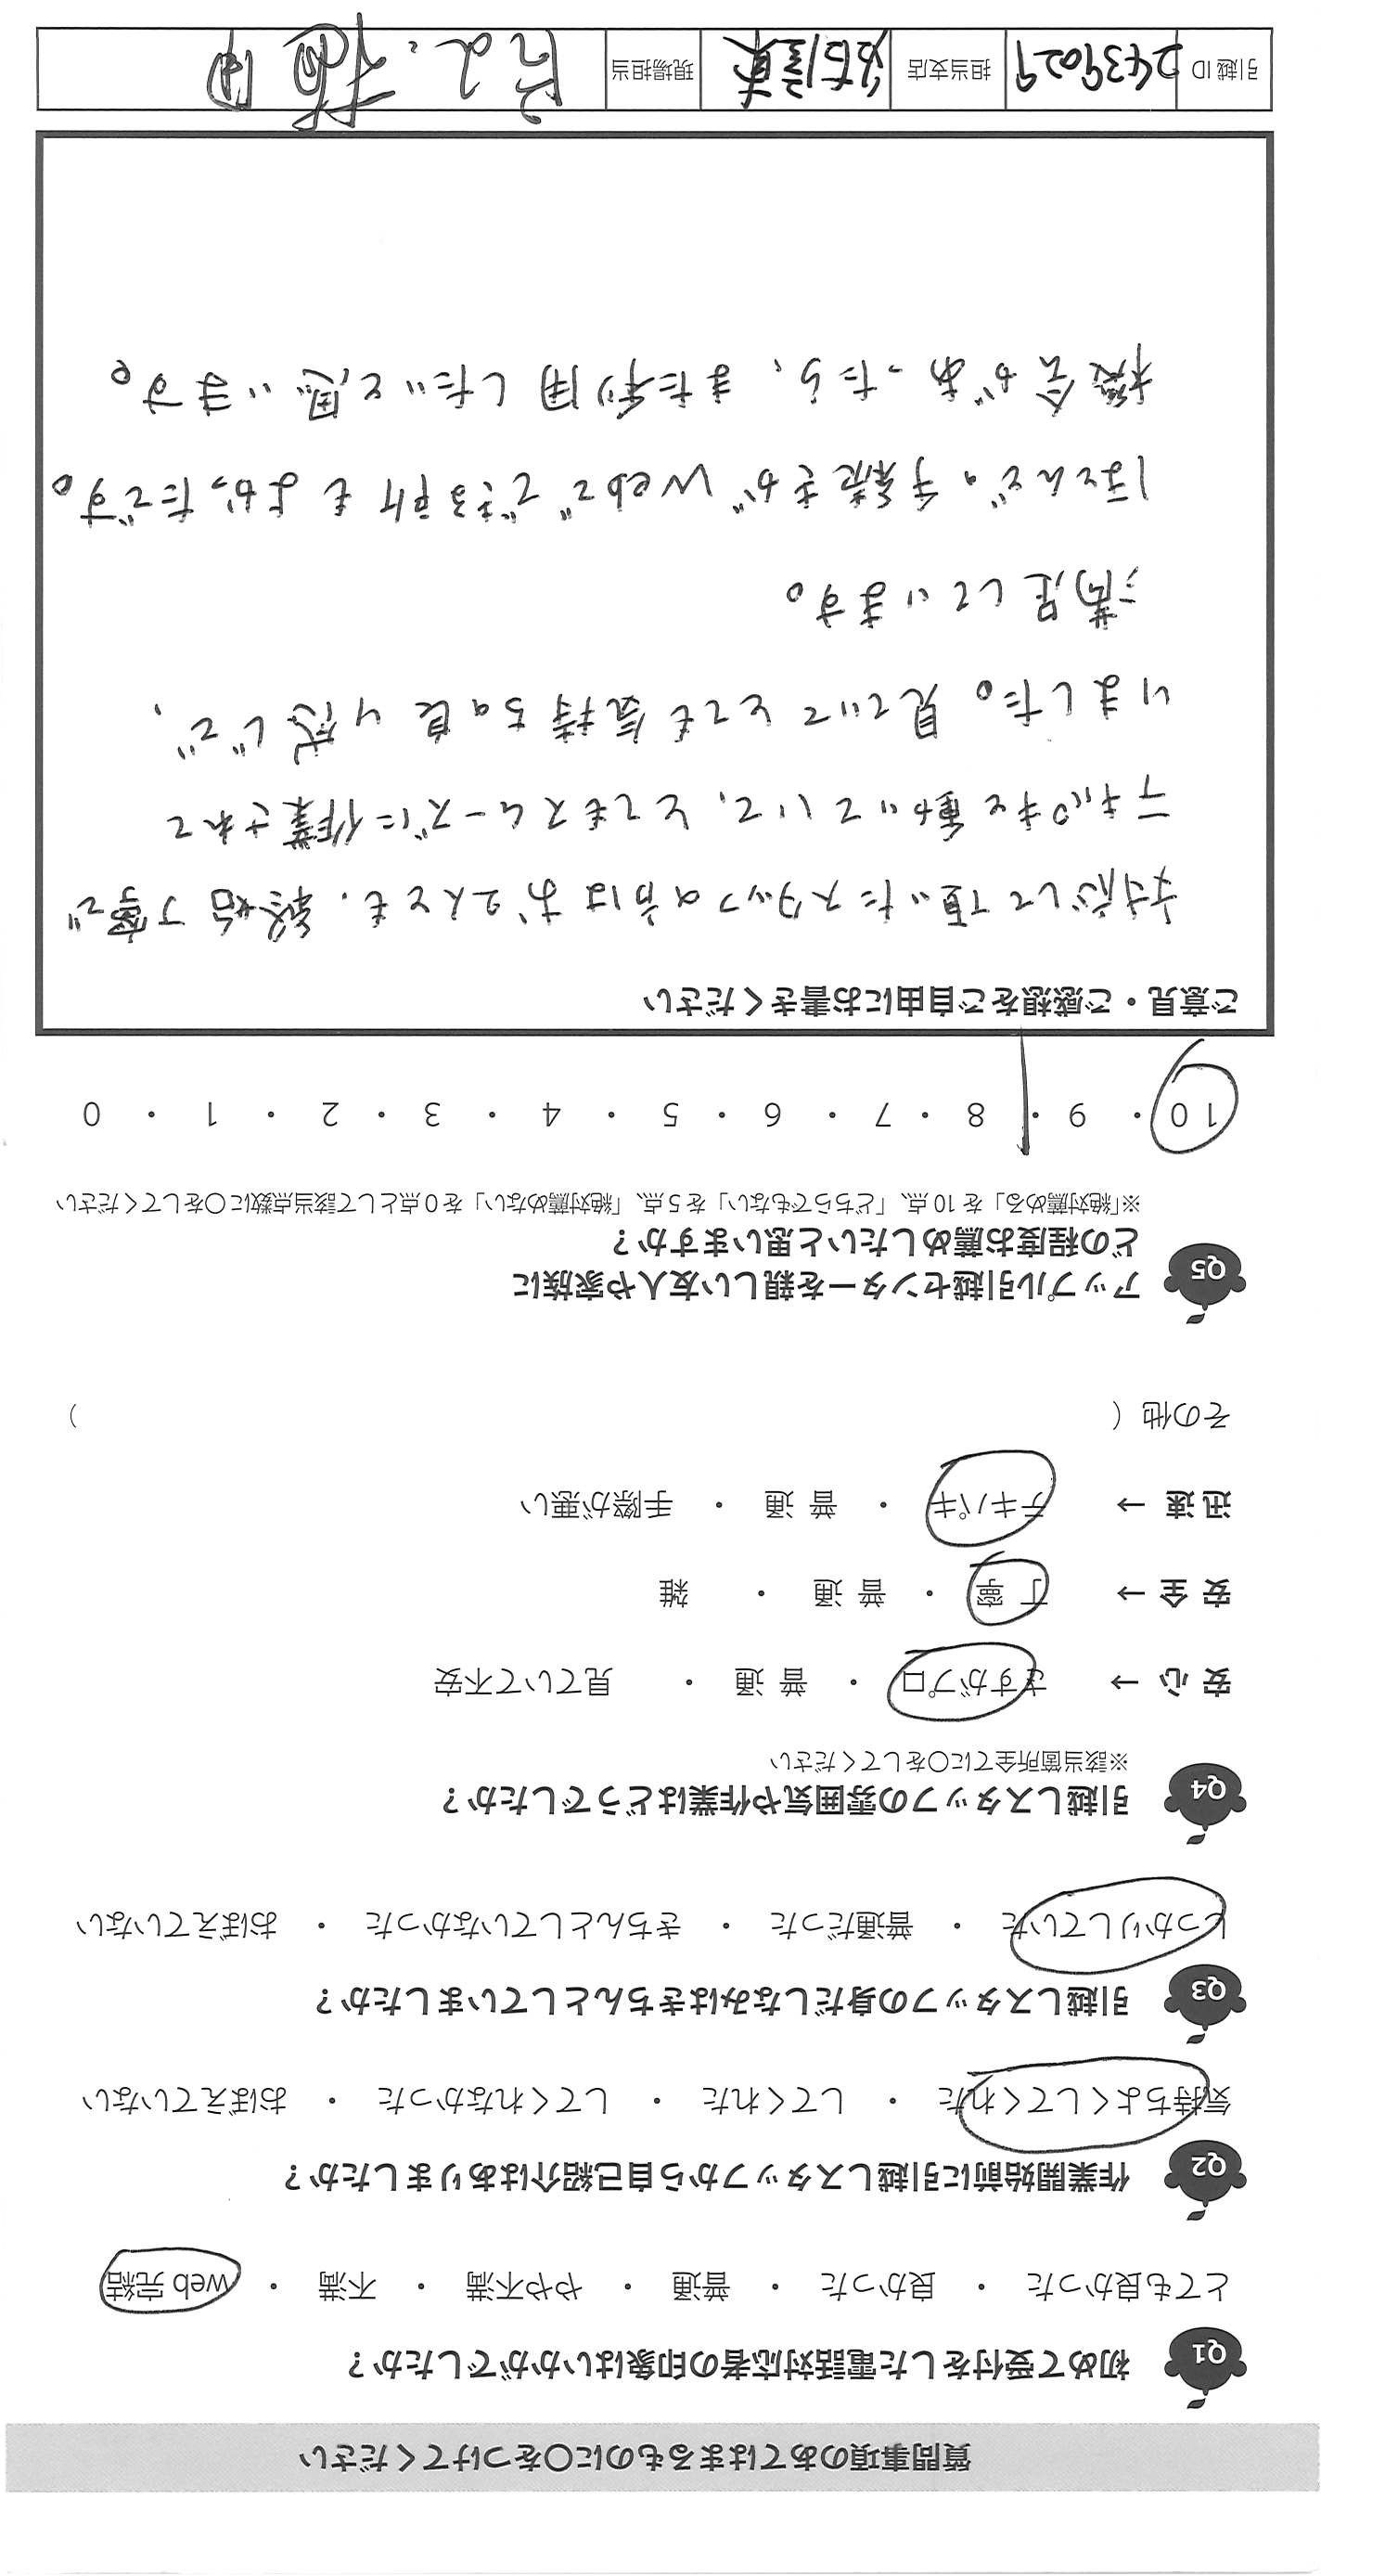 質問事項のあてはまるものに〇をつけてください
Q1 初めて受付をした電話対応者の印象はいかがでしたか？
とても良かった ・ 良かった ・ 普通 ・ やや不満 ・ 不満 ・ web 完結
Q2 作業開始前に引越しスタッフから自己紹介はありましたか？
気持ちよくしてくれた ・ してくれた ・ してくれなかった ・ おぼえていない
Q3 引越しスタッフの身だしなみはきちんとしていましたか？
しっかりしていた ・ 普通だった ・ きちんとしていなかった ・ おぼえていない
Q4 引越しスタッフの雰囲気や作業はどうでしたか？
※該当箇所全てに〇をしてください
安心 → さすがプロ ・ 普通 ・ 見ていて不安
安全 → 丁寧 ・ 普通 ・ 雑
迅速 → テキパキ ・ 普通 ・ 手際が悪い
その他（ ）
Q5 アップル引越センターを親しい友人や家族に
どの程度お薦めしたいと思いますか？
※「絶対薦める」を 10 点、「どちらでもない」を 5 点、「絶対薦めない」を 0 点として該当点数に〇をしてください
10 ・ 9 ・ 8 ・ 7 ・ 6 ・ 5 ・ 4 ・ 3 ・ 2 ・ 1 ・ 0
ご意見・ご感想をご自由にお書きください
対応して頂いたスタッフの方はお2人とも、終始丁寧で
テキパキと動いていて、とてもスムーズに作業されて
いました。見ていてとても気持ちの良い感じで、
満足しています。
ほとんどの手続きがWebでできる所もよかったです。
機会があったら、また利用したいと思います。
引越 ID 2439029 担当支店 現場担当